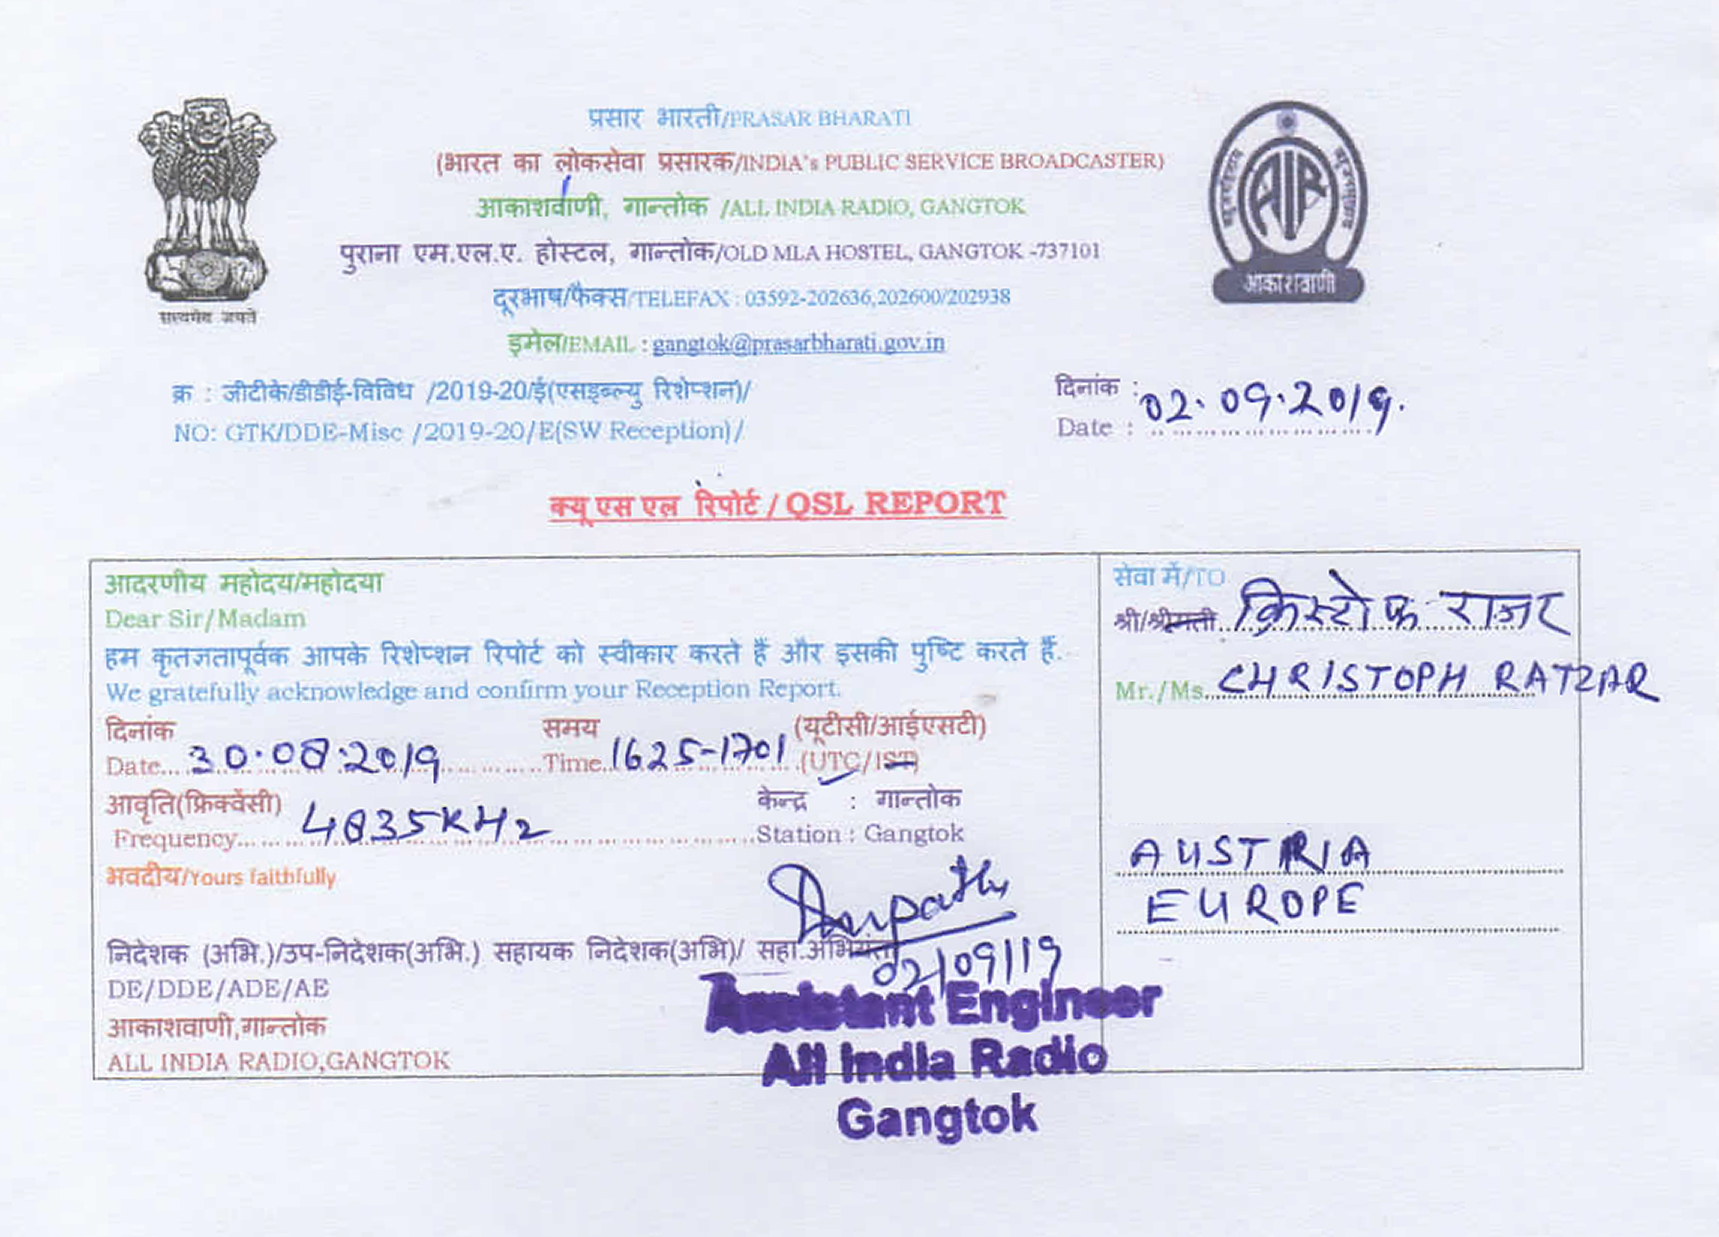 प्रसार भारती/PRASAR BHARATI
(भारत का लोकसेवा प्रसारक/INDIA's PUBLIC SERVICE BROADCASTER)
आकाशवाणी, गान्तोक /ALL INDIA RADIO, GANGTOK
पुराना एम.एल.ए. होस्टल, गान्तोक/OLD MLA HOSTEL, GANGTOK -737101
दूरभाष/फैक्स/TELEFAX : 03592-202636,202600/202938
इमेल/EMAIL : gangtok@prasarbharati.gov.in
सत्यमेव जयते
AIR
आकाशवाणी
क्र : जीटीके/डीडीई-विविध /2019-20/ई(एसडब्ल्यु रिशेप्शन)/
NO: GTK/DDE-Misc /2019-20/E(SW Reception)/
दिनांक :
Date : 02.09.2019.
क्यू एस एल रिपोर्ट / QSL REPORT
आदरणीय महोदय/महोदया
Dear Sir/Madam
हम कृतज्ञतापूर्वक आपके रिशेप्शन रिपोर्ट को स्वीकार करते हैं और इसकी पुष्टि करते हैं.
We gratefully acknowledge and confirm your Reception Report.
दिनांक समय (यूटीसी/आईएसटी)
Date... 30.08.2019 ............Time..1625-1701 (UTC/IST)
आवृति(फ्रिक्वेंसी) केन्द्र : गान्तोक
Frequency...... 4835KHz ........................Station : Gangtok
भवदीय/Yours faithfully
02/09/19
निदेशक (अभि.)/उप-निदेशक(अभि.) सहायक निदेशक(अभि)/ सहा.अभियंता
DE/DDE/ADE/AE
आकाशवाणी,गान्तोक
ALL INDIA RADIO,GANGTOK
Assistant Engineer
All India Radio
Gangtok
सेवा में/TO
श्री/श्रीमती क्रिस्टोफ राजर
Mr./Ms. CHRISTOPH RATZAR
AUSTRIA
EUROPE